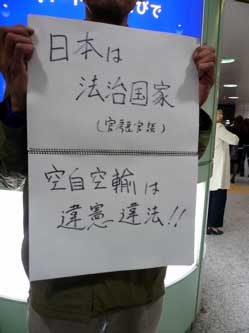 びで
日本は
法治国家
空自空輸は
違憲違法!!